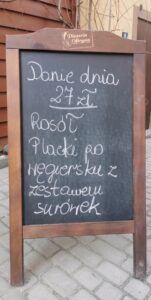 Pizzeria
Danie dnia
27 zł
Rosół
Placki po
węgiersku z
zestawem
surówek